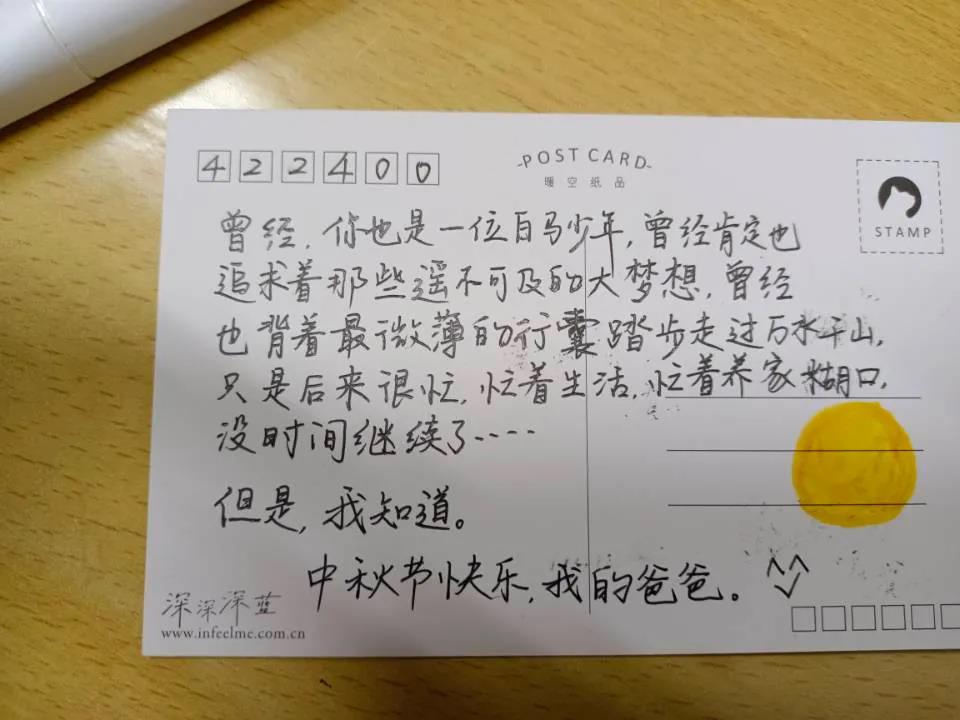 422400
-POST CARD-
暖空纸品
STAMP
曾经，你也是一位白马少年，曾经肯定也
追求着那些遥不可及的大梦想，曾经
也背着最微薄的行囊踏步走过万水千山，
只是后来很忙，忙着生活，忙着养家糊口，
没时间继续了……
但是，我知道。
中秋节快乐，我的爸爸。
深深深蓝
www.infeelme.com.cn